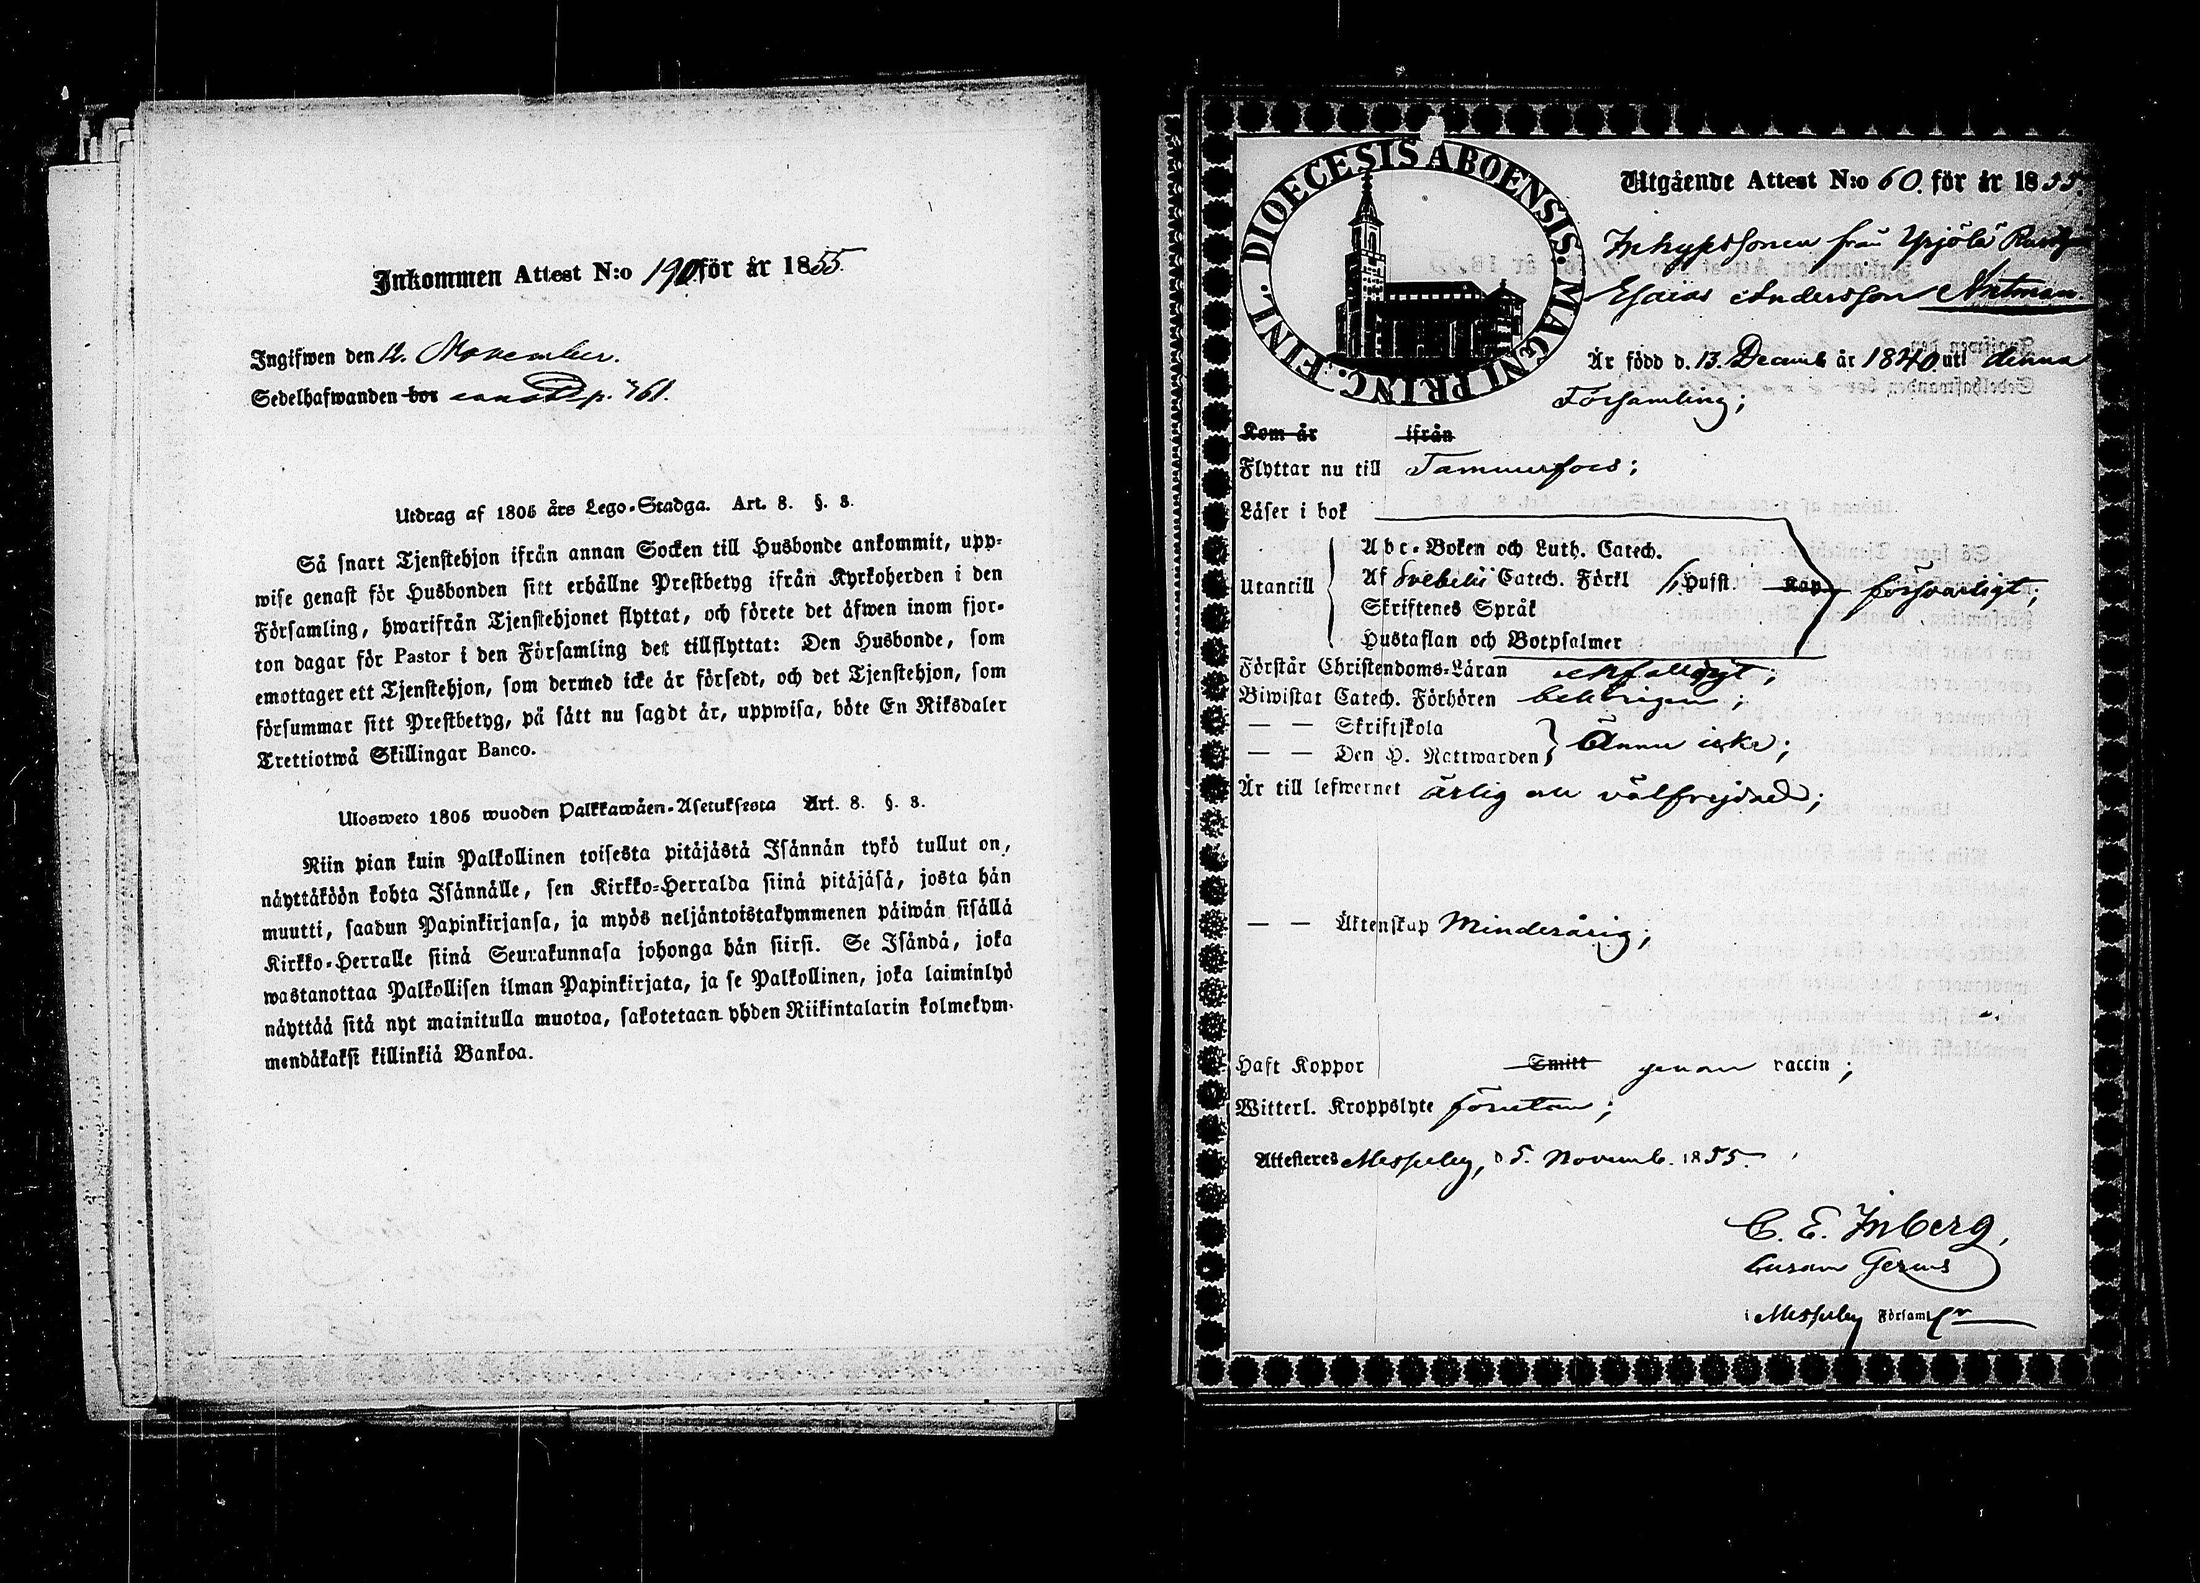 Inkommen Attest N:o 190 för år 1855.
Ingifwen den 12. November.
Sedelhafwanden bor p. 761.
Utdrag af 1805 års Lego-Stadga. Art. 8. §. 8.
Så snart Tjenstehjon ifrån annan Socken till Husbonde ankommit, upp-
wise genast för Husbonden sitt erhållne Prestbetyg ifrån Kyrkoherden i den
Församling, hwarifrån Tjenstehjonet flyttat, och förete det äfwen inom fjor-
ton dagar för Pastor i den Församling det tillflyttat: Den Husbonde, som
emottager ett Tjenstehjon, som dermed icke är försedt, och det Tjenstehjon, som
försummar sitt Prestbetyg, på sätt nu sagdt är, uppwisa, böte En Riksdaler
Trettiotwå Skillingar Banco.
Ulosweto 1805 wuoden Palkkawäen-Asetuksesta Art. 8. §. 8.
Niin pian kuin Palkollinen toisesta pitäjästä Isännän tykö tullut on,
näyttäköön kohta Isännälle, sen Kirkko-Herralda siinä pitäjäsä, josta hän
muutti, saadun Papinkirjansa, ja myös neljäntoistakymmenen päiwän sisällä
Kirkko-Herralle siinä Seurakunnasa johonga hän siirsi. Se Isändä, joka
wastanottaa Palkollisen ilman Papinkirjata, ja se Palkollinen, joka laiminlyö
näyttää sitä nyt mainitulla muotoa, sakotetaan yhden Riikintalarin kolmekym-
mendäkaksi killinkiä Bankoa.
DIOECESIS ABOENSIS. MAGNI PRINC. FINL.
Utgående Attest N:o 60. för år 1855.
Inhyssonen från
Esaias Andersson
Är född d. 13. Decemb år 1840. uti denna
Församling;
Kom år ifrån
Flyttar nu till Tammerfors;
Läser i bok
Utantill
Abc-Boken och Luth. Catech.
Af Svebelii Catech. Förkl Hufst. Kap försvarligt;
Skriftenes Språk
Hustaflan och Botpsalmer
Förstår Christendoms-Läran enfalldigt;
Biwistat Catech. Förhören behörigen;
— — Skriftskola
— — Den H. Nattwarden } Ännu icke;
Är till lefwernet ärlig och välfrejdad;
— — Äktenskap Minderårig;
Haft Koppor Smitt genom vaccin;
Witterl. Kroppslyte förutan;
Attesteras Messuby, d 5. Novemb. 1855.
C. E. Inberg,
i Messuby Församl